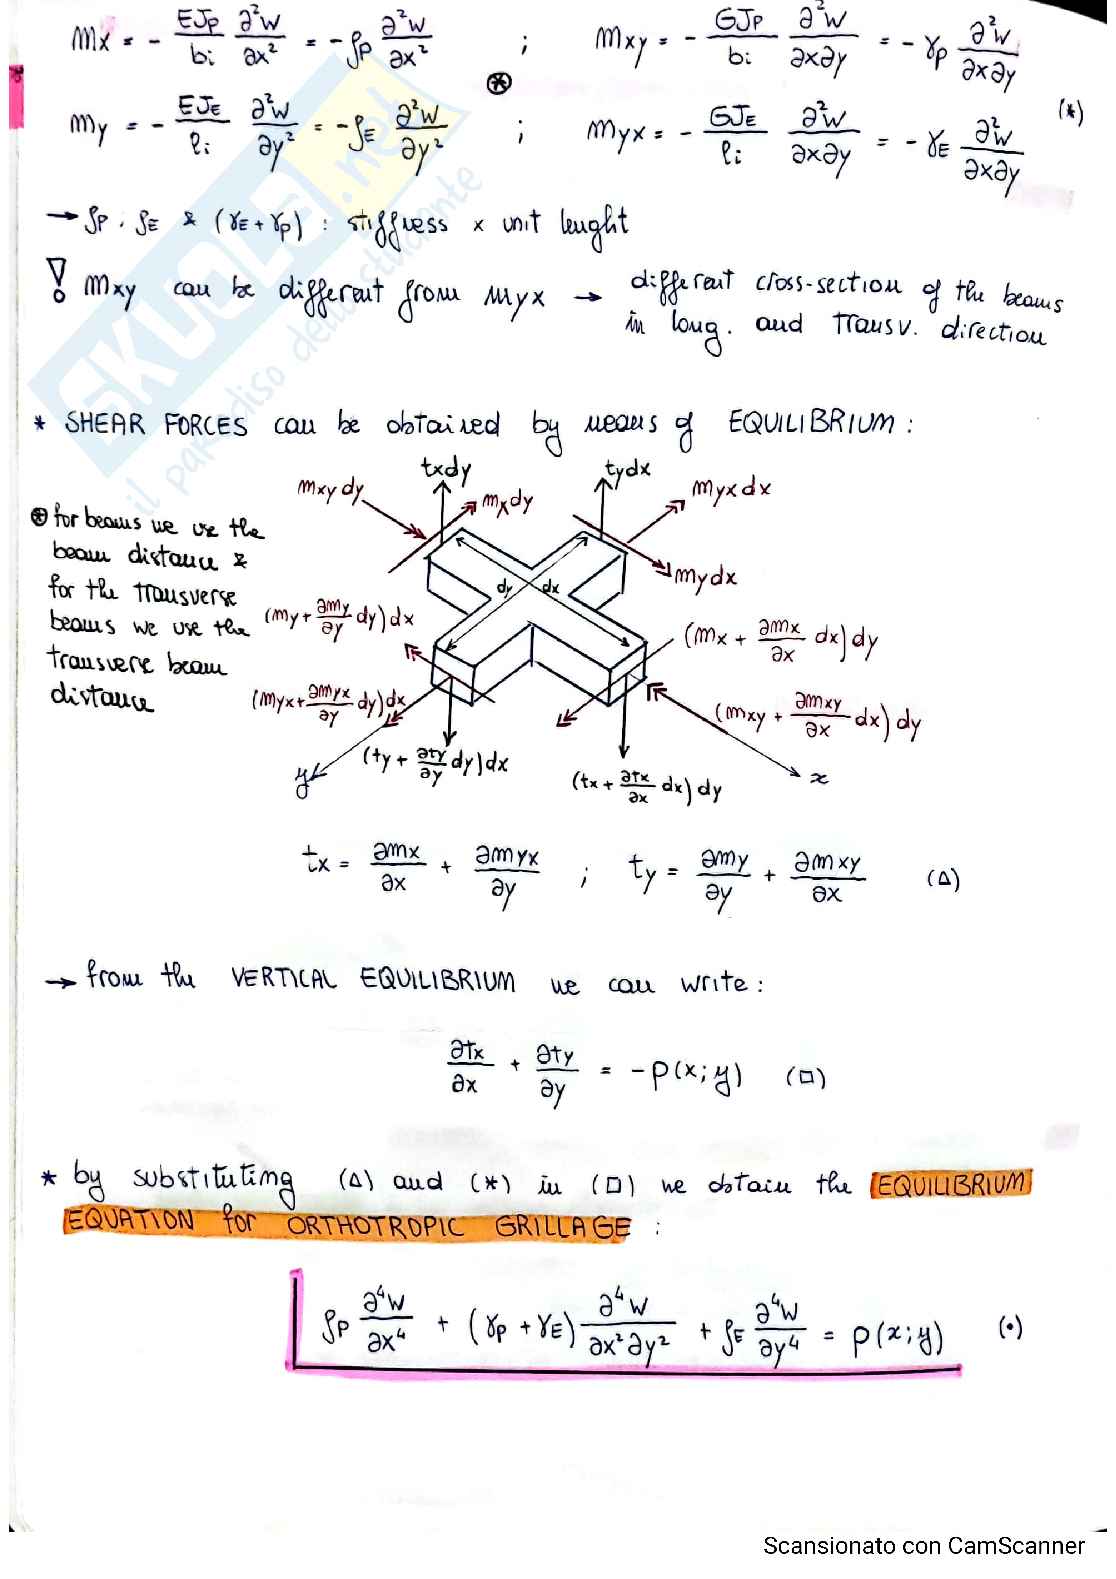 mx = - EJP/bi ∂²w/∂x² = - ρP ∂²w/∂x² ; mxy = - GJP/bi ∂²w/∂x∂y = - γP ∂²w/∂x∂y
⊛ (*)
my = - EJE/li ∂²w/∂y² = - ρE ∂²w/∂y² ; myx = - GJE/li ∂²w/∂x∂y = - γE ∂²w/∂x∂y
→ ρP, ρE & (γE + γP) : stiffness x unit lenght
! mxy can be different from myx → different cross-section of the beams
in long. and transv. direction
* SHEAR FORCES can be obtained by means of EQUILIBRIUM :
⊛ for beams we use the
beam distance &
for the transverse
beams we use the
transverse beam
distance
mxy dy
txdy
mxdy
tydx
myxdx
mydx
dy
dx
(my + ∂my/∂y dy)dx
(mx + ∂mx/∂x dx)dy
(myx + ∂myx/∂y dy)dx
(mxy + ∂mxy/∂x dx)dy
(ty + ∂ty/∂y dy)dx
(tx + ∂tx/∂x dx)dy
y
x
tx = ∂mx/∂x + ∂myx/∂y ; ty = ∂my/∂y + ∂mxy/∂x (Δ)
→ from the VERTICAL EQUILIBRIUM we can write :
∂tx/∂x + ∂ty/∂y = - p(x;y) (□)
* by substituting (Δ) and (*) in (□) we obtain the EQUILIBRIUM
EQUATION for ORTHOTROPIC GRILLAGE :
ρP ∂⁴w/∂x⁴ + (γP + γE) ∂⁴w/∂x²∂y² + ρE ∂⁴w/∂y⁴ = p(x;y) (•)
SKUOLA.net
il paradiso dello studente
Scansionato con CamScanner